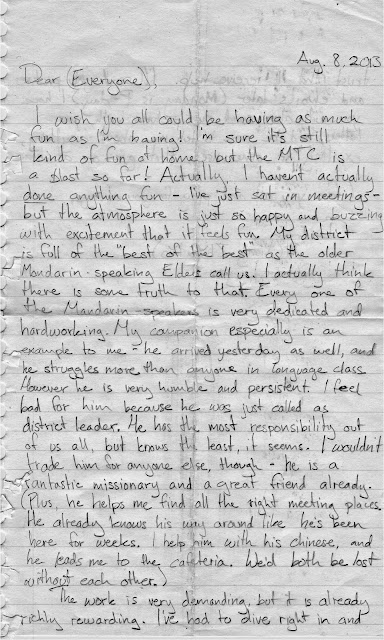 Aug. 8, 2013
Dear (Everyone),
I wish you all could be having as much
fun as I'm having! I'm sure it's still
kind of fun at home, but the MTC is
a blast so far! Actually, I haven't actually
done anything fun - I've just sat in meetings -
but the atmosphere is just so happy and buzzing
with excitement that it feels fun. My district
is full of the "best of the best" as the older
Mandarin-speaking Elders call us. I actually think
there is some truth to that. Every one of
the Mandarin-speakers is very dedicated and
hardworking. My companion especially is an
example to me - he arrived yesterday as well, and
he struggles more than anyone in language class.
However he is very humble and persistent. I feel
bad for him because he was just called as
district leader. He has the most responsibility out
of us all, but knows the least, it seems. I wouldn't
trade him for anyone else, though - he is a
fantastic missionary and a great friend already.
(Plus, he helps me find all the right meeting places.
He already knows his way around like he's been
here for weeks. I help him with his Chinese, and
he leads me to the cafeteria. We'd both be lost
without each other.)
The work is very demanding, but it is already
richly rewarding. I've had to dive right in and